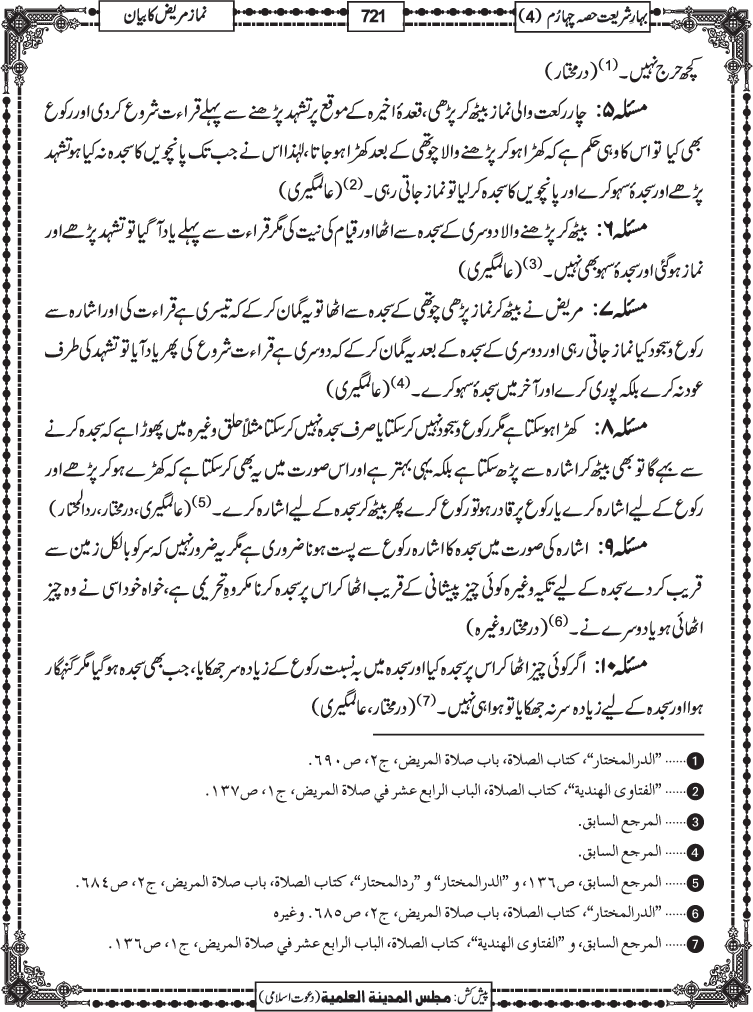 بہارِ شریعت حصہ چہارم (4)
721
نماز مریض کا بیان
کچھ حرج نہیں۔(1) (درمختار)
مسئلہ ۵: چار رکعت والی نماز بیٹھ کر پڑھی، قعدۂ اخیرہ کے موقع پر تشہد پڑھنے سے پہلے قراءت شروع کر دی اور رکوع
بھی کیا تو اس کا وہی حکم ہے کہ کھڑا ہو کر پڑھنے والا چوتھی کے بعد کھڑا ہو جاتا، لہٰذا اس نے جب تک پانچویں کا سجدہ نہ کیا ہو تشہد
پڑھے اور سجدۂ سہو کرے اور پانچویں کا سجدہ کر لیا تو نماز جاتی رہی۔(2) (عالمگیری)
مسئلہ ۶: بیٹھ کر پڑھنے والا دوسری کے سجدہ سے اٹھا اور قیام کی نیت کی مگر قراءت سے پہلے یاد آ گیا تو تشہد پڑھے اور
نماز ہوگئی اور سجدۂ سہو بھی نہیں۔(3) (عالمگیری)
مسئلہ ۷: مریض نے بیٹھ کر نماز پڑھی چوتھی کے سجدہ سے اٹھا تو یہ گمان کر کے کہ تیسری ہے قراءت کی اور اشارہ سے
رکوع و سجود کیا نماز جاتی رہی اور دوسری کے سجدہ کے بعد یہ گمان کر کے کہ دوسری ہے قراءت شروع کی پھر یاد آیا تو تشہد کی طرف
عود نہ کرے بلکہ پوری کرے اور آخر میں سجدۂ سہو کرے۔(4) (عالمگیری)
مسئلہ ۸: کھڑا ہو سکتا ہے مگر رکوع و سجود نہیں کر سکتا یا صرف سجدہ نہیں کر سکتا مثلاً حلق وغیرہ میں پھوڑا ہے کہ سجدہ کرنے
سے بہے گا تو بھی بیٹھ کر اشارہ سے پڑھ سکتا ہے بلکہ یہی بہتر ہے اور اس صورت میں یہ بھی کر سکتا ہے کہ کھڑے ہو کر پڑھے اور
رکوع کے لیے اشارہ کرے یا رکوع پر قادر ہو تو رکوع کرے پھر بیٹھ کر سجدہ کے لیے اشارہ کرے۔(5) (عالمگیری، درمختار، ردالمحتار)
مسئلہ ۹: اشارہ کی صورت میں سجدہ کا اشارہ رکوع سے پست ہونا ضروری ہے مگر یہ ضرور نہیں کہ سر کو بالکل زمین سے
قریب کر دے سجدہ کے لیے تکیہ وغیرہ کوئی چیز پیشانی کے قریب اٹھا کر اس پر سجدہ کرنا مکروہِ تحریمی ہے، خواہ خود اسی نے وہ چیز
اٹھائی ہو یا دوسرے نے۔(6) (درمختار وغیرہ)
مسئلہ ۱۰: اگر کوئی چیز اٹھا کر اس پر سجدہ کیا اور سجدہ میں بہ نسبت رکوع کے زیادہ سر جھکایا، جب بھی سجدہ ہو گیا مگر گنہگار
ہوا اور سجدہ کے لیے زیادہ سر نہ جھکایا تو ہوا ہی نہیں۔(7) (درمختار، عالمگیری)
1 ...... ”الدرالمختار“، کتاب الصلاة، باب صلاة المریض، ج۲، ص۶۹۰.
2 ...... ”الفتاوی الھندیة“، کتاب الصلاة، الباب الرابع عشر في صلاة المریض، ج۱، ص۱۳۷.
3 ...... المرجع السابق.
4 ...... المرجع السابق.
5 ...... المرجع السابق، ص۱۳۶، و ”الدرالمختار“ و ”ردالمحتار“، کتاب الصلاة، باب صلاة المریض، ج۲، ص۶۸۴.
6 ...... ”الدرالمختار“، کتاب الصلاة، باب صلاة المریض، ج۲، ص۶۸۵. وغیرہ
7 ...... المرجع السابق، و ”الفتاوی الھندیة“، کتاب الصلاة، الباب الرابع عشر في صلاة المریض، ج۱، ص۱۳۶.
پیش کش: مجلس المدینة العلمیة (دعوت اسلامی)